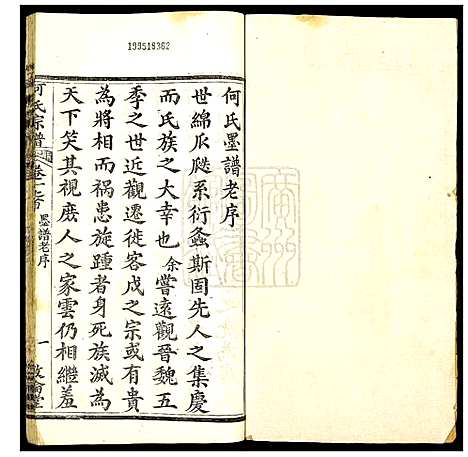 199518362
何氏墨譜老序
世綿瓜瓞系衍螽斯固先人之集慶
而氏族之大幸也余嘗遠觀晉魏五
季之世近觀遷徙客戍之宗或有貴
為將相而禍患旋踵者身死族滅為
天下笑其視庶人之家雲仍相繼羞
何氏宗譜 卷一 墨譜老序 一 敦倫堂